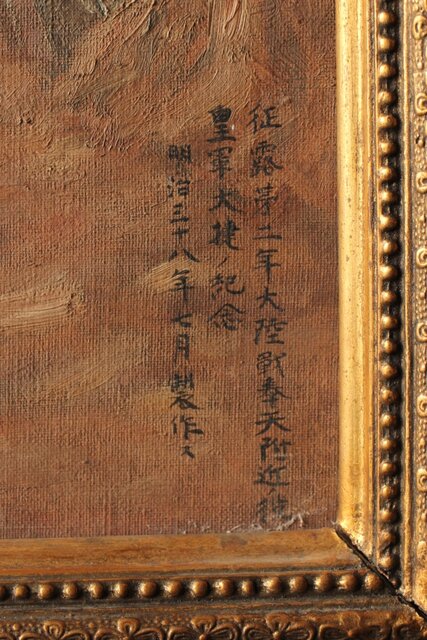 征露第二年大陸戦奉天附近ノ役
皇軍大捷ノ紀念
明治三十八年七月製作ス